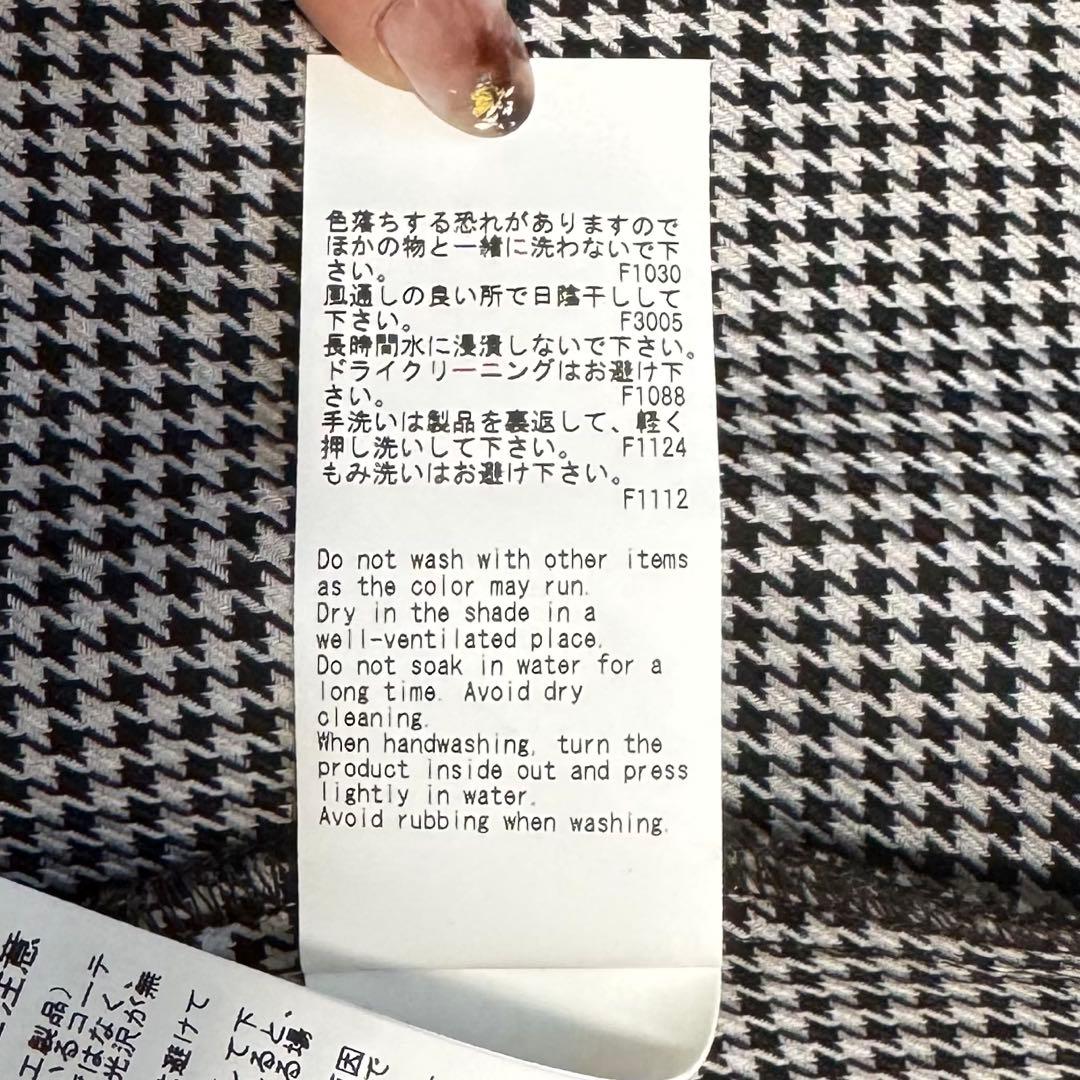 色落ちする恐れがありますので
ほかの物と一緒に洗わないで下
さい。 F1030
風通しの良い所で日陰干しして
下さい。 F3005
長時間水に浸漬しないで下さい。
ドライクリーニングはお避け下
さい。 F1088
手洗いは製品を裏返して、軽く
押し洗いして下さい。 F1124
もみ洗いはお避け下さい。
F1112
Do not wash with other items
as the color may run.
Dry in the shade in a
well-ventilated place.
Do not soak in water for a
long time. Avoid dry
cleaning.
When handwashing, turn the
product inside out and press
lightly in water.
Avoid rubbing when washing.
注意
工製品)
るコーテ
はなく、
光沢が無
避けて
下と、
てる場
因
で